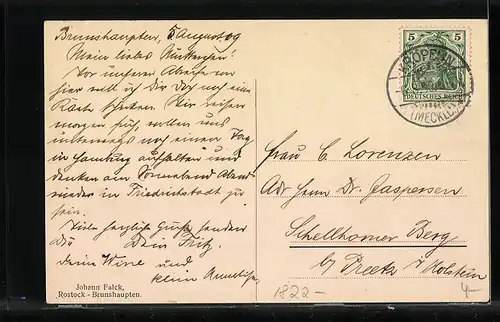 Brunshaupten, 5 August 09
Mein liebes Muttchen!
Vor unserer Abreise von
hier will ich Dir doch noch eine
Karte schicken. Wir reisen
morgen früh, wollen uns
unterwegs noch einen Tag
in Hamburg aufhalten und
denken am Sonnabend Abend
wieder in Friedrichstadt zu
sein.
Viele herzliche Grüße senden
Dir Dein Fritz,
Deine Wine und
klein
Johann Falck,
Rostock - Brunshaupten.
5 5
KRÖPELIN
DEUTSCHES REICH
(MECKLB)
Frau C. Lorenzen
Adr Herrn Dr. Jaspersen
Schellhorner Berg
by Preetz i/Holstein
1822 -
4-